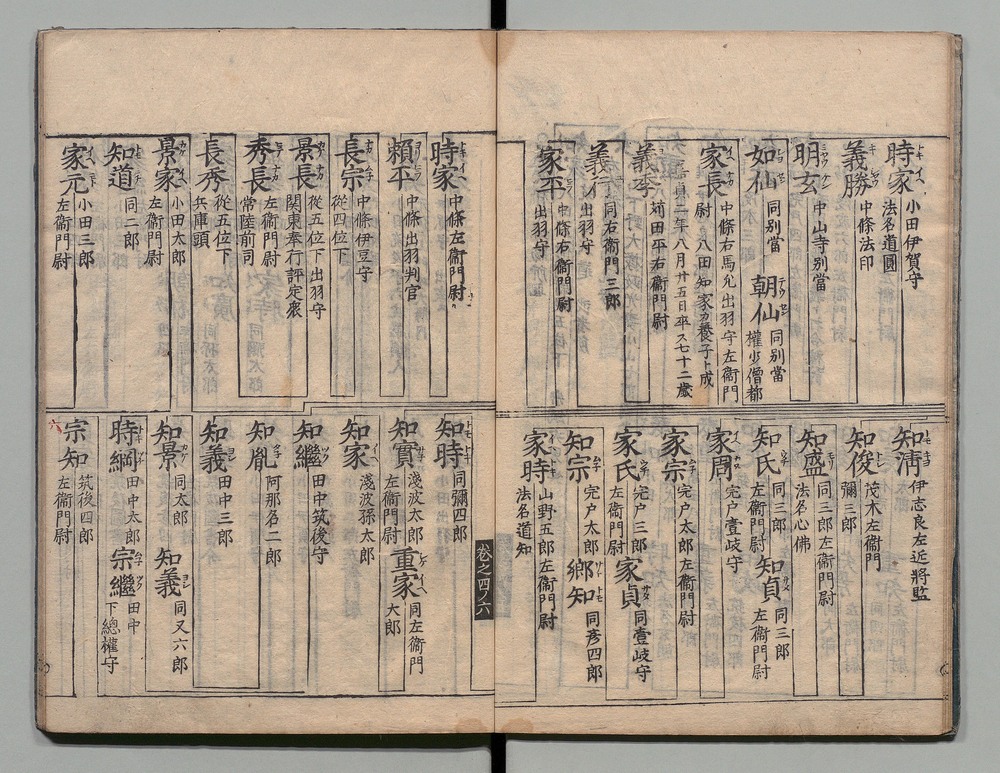 時家 小田伊賀守
法名道圓
義勝 中條法印
明玄 中山寺別當
如仙 同別當
朝仙 同別當
權少僧都
家長 中條右馬允出羽守左衞門
尉 八田知家
貞二年八月廿五日卒ス七十二歳
義季 苅田平右衞門尉
義行 同右衞門三郎
出羽守
家平 中條右衞門尉
出羽守
知淸 伊志良左近將監
知俊 茂木左衞門
彌三郎
知盛 同三郎左衞門尉
法名心佛
知氏 同三郎
左衞門尉
知貞 同三郎
左衞門尉
家周 宍戸壹岐守
家宗 宍戸太郎左衞門尉
家氏 宍戸三郎
左衞門尉
家貞 同壹岐守
知宗 宍戸太郎
鄕知 同彦四郎
家時 山野五郎左衞門尉
法名道知
時家 中條左衞門尉
賴平 中條出羽判官
長宗 中條伊豆守
從四位下
景長 從五位下出羽守
関東奉行評定衆
秀長 左衞門尉
常陸前司
長秀 從五位下
兵庫頭
景家 小田太郎
左衞門尉
知道 同二郎
家元 小田三郎
左衞門尉
卷之四ノ六
知時 同彌四郎
知實 淺波太郎
左衞門尉
重家 同左衞門
太郎
知家 淺波孫太郎
知繼 田中筑後守
知胤 阿那名二郎
知義 田中三郎
知景 同太郎
知義 同又六郎
時綱 田中太郎
宗繼 田中
下總權守
宗知 筑後四郎
左衞門尉
六